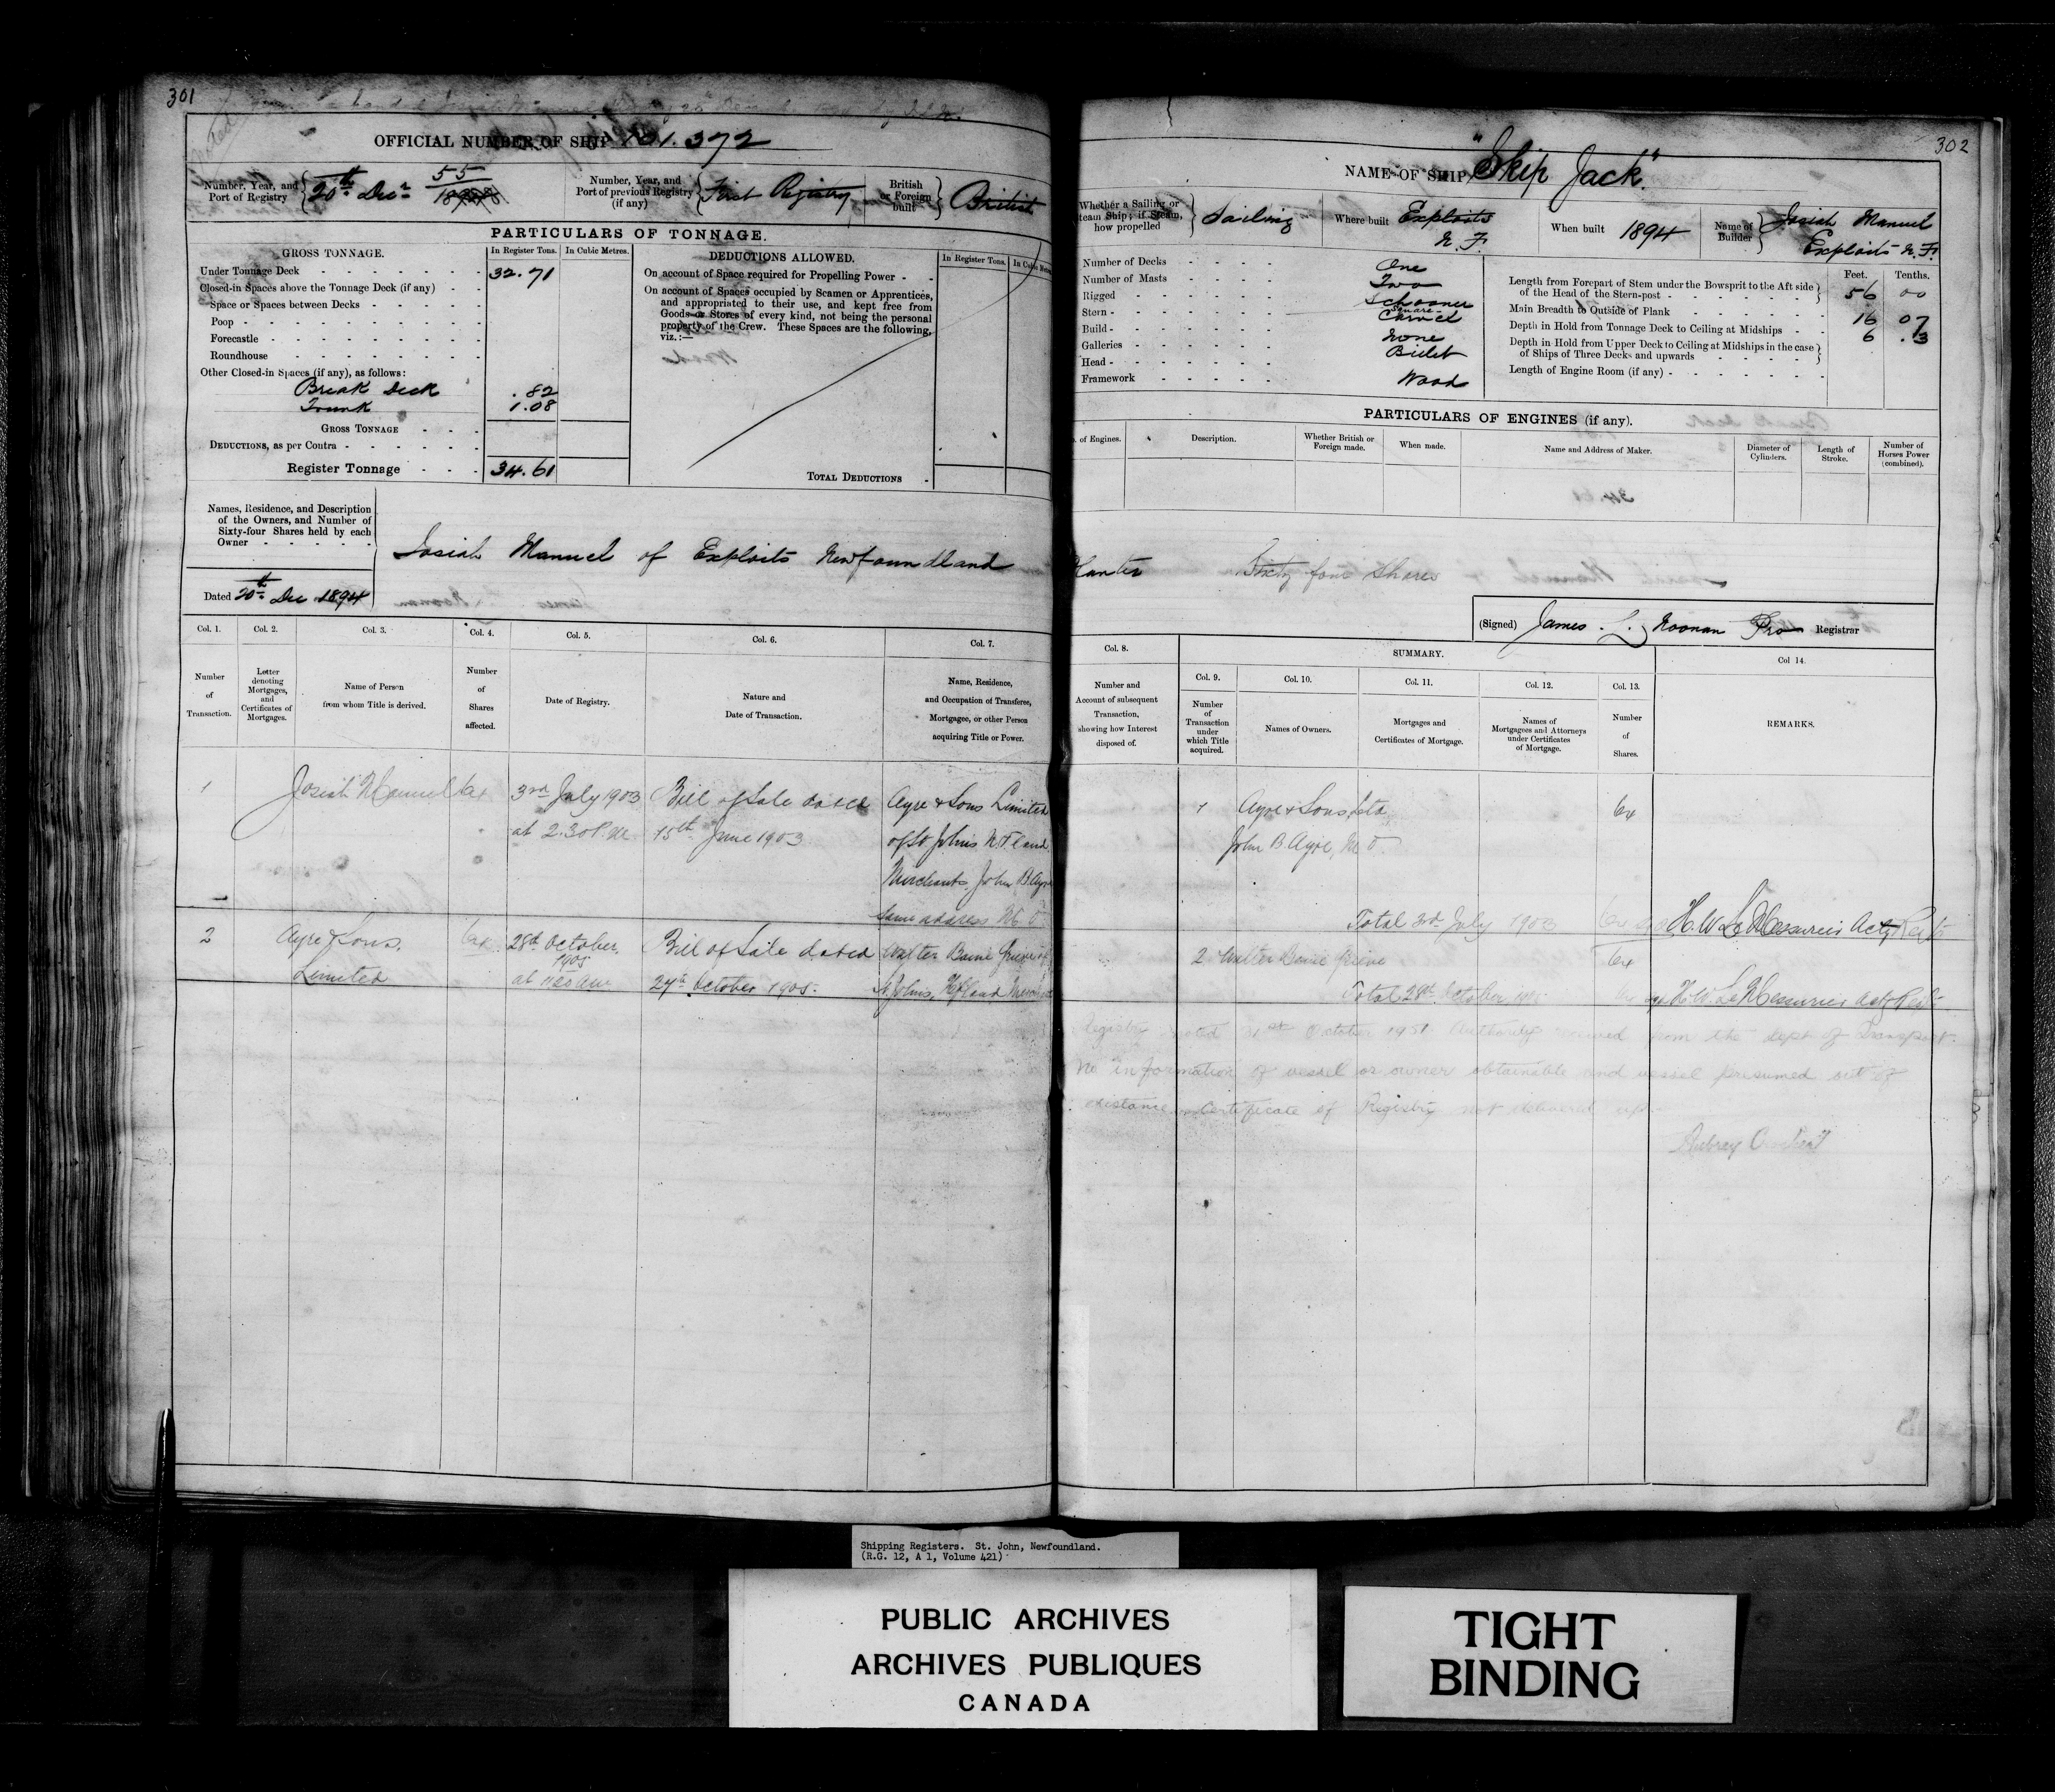 301
OFFICIAL NUMBER OF SHIP 101.372
Number, Year, and Port of Registry 20th Decr 55
Number, Year, and Port of previous Registry (if any) First Registry
British or Foreign built British
PARTICULARS OF TONNAGE.
GROSS TONNAGE. In Register Tons. In Cubic Metres.
Under Tonnage Deck 32.71
Closed-in Spaces above the Tonnage Deck (if any)
Space or Spaces between Decks
Poop
Forecastle
Roundhouse
Other Closed-in Spaces (if any), as follows:
Break Deck .82
Trunk 1.08
GROSS TONNAGE
DEDUCTIONS, as per Contra
Register Tonnage 34.61
DEDUCTIONS ALLOWED. In Register Tons.
On account of Space required for Propelling Power
On account of Spaces occupied by Seamen or Apprentices,
and appropriated to their use, and kept free from
Goods or Stores of every kind, not being the personal
property of the Crew. These Spaces are the following,
viz.:—
TOTAL DEDUCTIONS
Names, Residence, and Description
of the Owners, and Number of
Sixty-four Shares held by each
Owner
Josiah Manuel of Exploits Newfoundland
Dated 20th Dec 1894
Col. 1. Col. 2. Col. 3. Col. 4. Col. 5. Col. 6. Col. 7.
Number of Transaction.
Letter denoting Mortgages, and Certificates of Mortgages.
Name of Person from whom Title is derived.
Number of Shares affected.
Date of Registry.
Nature and Date of Transaction.
Name, Residence, and Occupation of Transferee, Mortgagee, or other Person acquiring Title or Power.
1 Josiah Manuel 64 3rd July 1903 Bill of Sale dated Ayre & Sons Limited
at 2.30 P.M. 15th June 1903 of St Johns
Merchants, John B Ayre
same address
2 Ayre & Sons, 64 28th October, Bill of Sale dated Walter Baine Grieve of
1905
Limited at 27th October 1905. St Johns,
302
NAME OF SHIP "Skip Jack"
Whether a Sailing or Steam Ship; if Steam, how propelled Sailing
Where built Exploits N.F.
When built 1894
Name of Builder Josiah Manuel Exploits N.F.
Number of Decks One
Number of Masts Two
Rigged Schooner
Stern Square
Build Carvel
Galleries None
Head Billet
Framework Wood
Feet. Tenths.
Length from Forepart of Stem under the Bowsprit to the Aft side
of the Head of the Stern-post 56 00
Main Breadth to Outside of Plank 16 07
Depth in Hold from Tonnage Deck to Ceiling at Midships 6 .3
Depth in Hold from Upper Deck to Ceiling at Midships in the case
of Ships of Three Decks and upwards
Length of Engine Room (if any)
PARTICULARS OF ENGINES (if any).
of Engines. Description. Whether British or Foreign made. When made. Name and Address of Maker. Diameter of Cylinders. Length of Stroke. Number of Horses Power (combined).
Planter Sixty four Shares
(Signed) James L. Noonan Pro Registrar
Col. 8. SUMMARY. Col 14.
Col. 9. Col. 10. Col. 11. Col. 12. Col. 13.
Number and Account of subsequent Transaction, showing how Interest disposed of.
Number of Transaction under which Title acquired.
Names of Owners.
Mortgages and Certificates of Mortgage.
Names of Mortgagees and Attorneys under Certificates of Mortgage.
Number of Shares.
REMARKS.
1 Ayre & Sons Ltd 64
John B Ayre,
Total 3rd July 1903 64 H. W. LeMessurier Actg Registr
2 Walter Baine Grieve 64
Total 28th October 1905 H. W. LeMessurier Actg Registr
Registry 31st October 1951 Authority received from the dept of Transport.
No information of vessel or owner obtainable and vessel presumed out of
existence Certificate of Registry not delivered up
Aubrey
Shipping Registers. St. John, Newfoundland.
(R.G. 12, A 1, Volume 421)
PUBLIC ARCHIVES
ARCHIVES PUBLIQUES
CANADA
TIGHT
BINDING